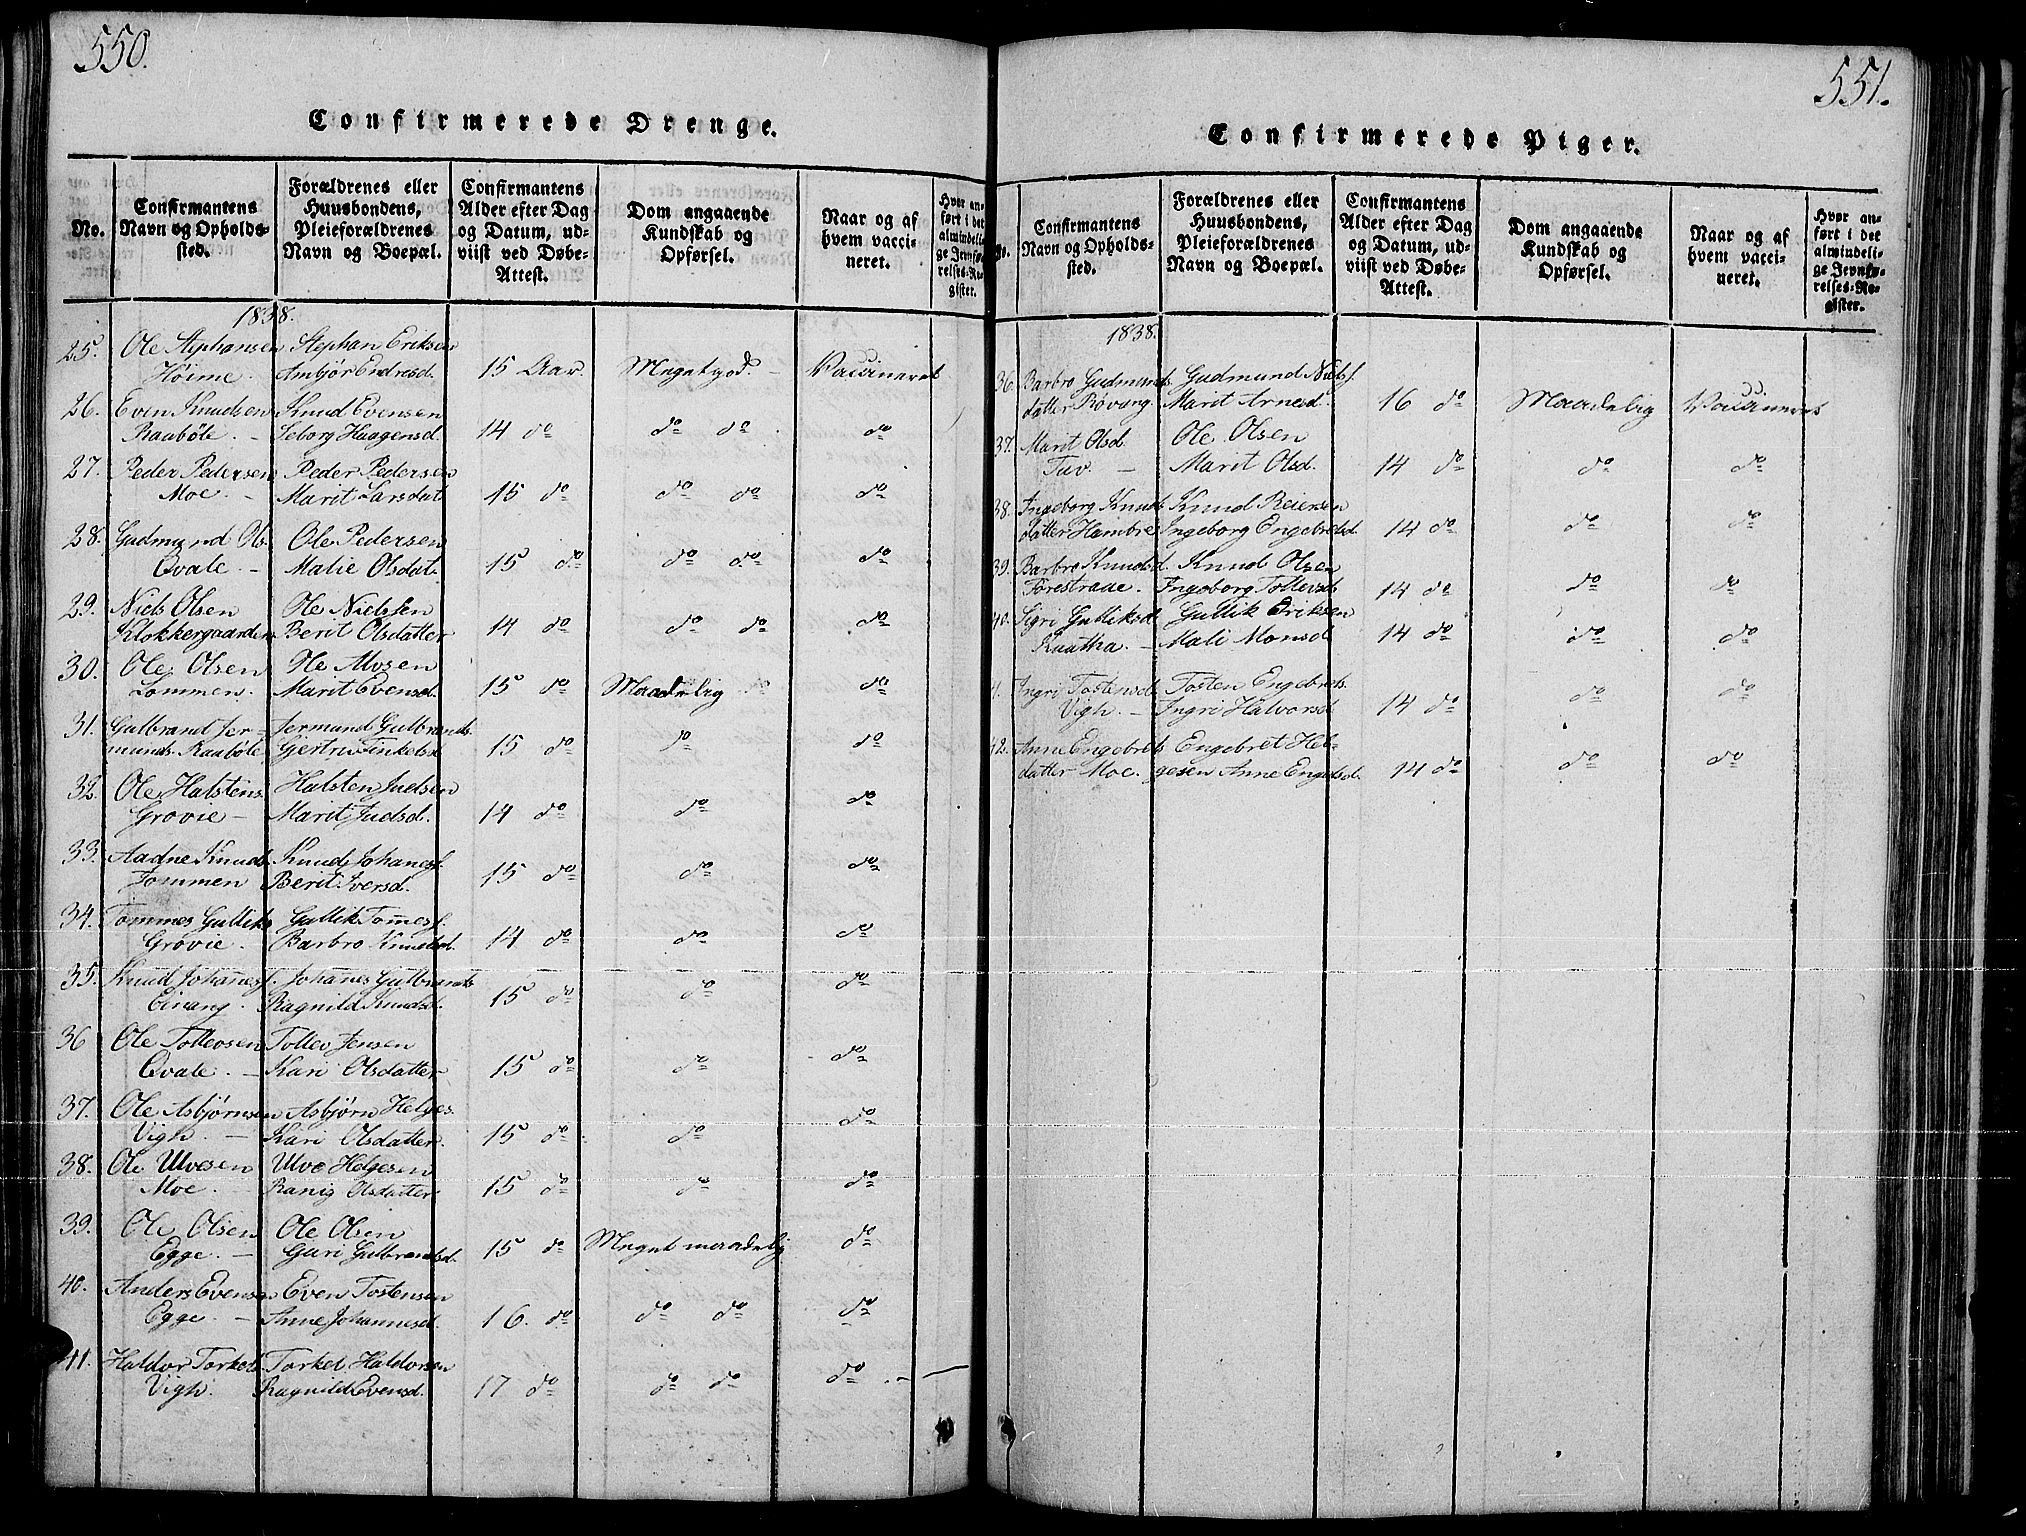 550.
Confirmerede Drenge.
No.
Confirmantens Navn og Opholds-sted.
Forældrenes eller Huusbondens, Pleieforældrenes Navn og Boepæl.
Confirmantens Alder efter Dag og Datum, ud-viist ved Døbe-Attest.
Dom angaaende Kundskab og Opførsel.
Naar og af hvem vacci-neret.
Hvor an-ført i det almindeli-ge Jevnfø-relses-Re-gister.
1838.
25. Ole Stephansen Stephan Eriksen
Høime. Ambjør Endresd. 15 Aar. Meget god. Vaccineret
26. Even Knudsen Knud Evensen
Raabøle. Seborg Haagensd. 14 do do do do
27. Peder Pedersen Peder Pedersen
Moe. Marit Larsdat 15 do do do do
28. Gudmund Ols. Ole Pedersen
Qvale. Malie Olsdat 15 do do do do
29. Niels Olsen Ole Nielssen
Klokkergaarden Berit Olsdatter 14 do do do do
30. Ole Olsen Ole Alvsen
Lommen. Marit Evensd. 15 do Maadelig do
31. Gulbrand Jer- Jermund Gulbrands.
munds. Raabøle Gjertru Finkelsd 15 do do do
32. Ole Halstens. Halsten Judsen
Grovie Marit Judsd. 14 do do do
33. Aadne Knuds. Knud Johanesf.
Lommen Berit Iversd. 15 do do do
34. Tommes Gulliks Gullik Tom̄esf.
Grovie. Barbro Knudsd. 14 do do do
35. Knud Johan̄esf. Johan̄es Gulbrands
Einang. Ragnild Knudsd. 15 do do do
36 Ole Tollevsen Tollev Jensen
Qvale. Kari Olsdatter 15 do do do
37. Ole Asbjørnsen Asbjørn Helges.
Vigh. Kari Olsdatter. 15 do do do
38. Ole Ulvesen Ulve Helgesen
Moe. Ranig Olsdatter 15 do do do
39. Ole Olsen Ole Olsen
Egge. Guri Gulbrandsd. 15 do Meget maadelig do
40. Anders Evensen Even Tostensen
Egge. Anne Johannesd. 16. do do do do
41. Haldor Torkels. Torkel Haldorsen
Vigh. Ragnild Evensd. 17 do do do do
551.
Confirmerede Piger.
No.
Confirmantens Navn og Opholds-sted.
Forældrenes eller Huusbondens, Pleieforældrenes Navn og Boepæl.
Confirmantens Alder efter Dag og Datum, ud-viist ved Døbe-Attest.
Dom angaaende Kundskab og Opførsel.
Naar og af hvem vacci-neret.
Hvor an-ført i det almindeli-ge Jevnfø-relses-Re-gister.
1838.
36. Barbro Gudmunds Gudmund Nielsf.
datter Røvang. Marit Arnesd. 16 do Maadelig Vaccineret
37. Marit Olsd. Ole Olsen
Tuv. Marit Olsd. 14 do do do
38. Ingeborg Knuds Knud Reiersen
datter Hambre Ingeborg Engebretsd. 14 do do do
39. Barbro Knudsd. Knud Olsen
Forestraae. Ingeborg Tollevsd. 14 do do do
40. Sigri Gulliksd. Gullik Eriksen
Mali Monsd 14 do do do
Ingri Tostensd. Tosten Engebrets.
Vigh. Ingri Halvorsd 14 do do do
Anne Engebrets Engebret Hel-
datter Moe. gesen Anne Engelsd. 14 do do do